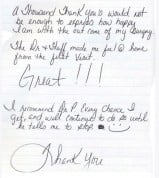 A Thousand Thank You's would not
be enough to express how happy
I am with the out come of my Surgery.
The Dr & Staff made me feel @ home
from the first Visit.
Great!!!
I recommend Dr P Every chance I
get, and will continue to do so until
he tells me to stop
Thank You